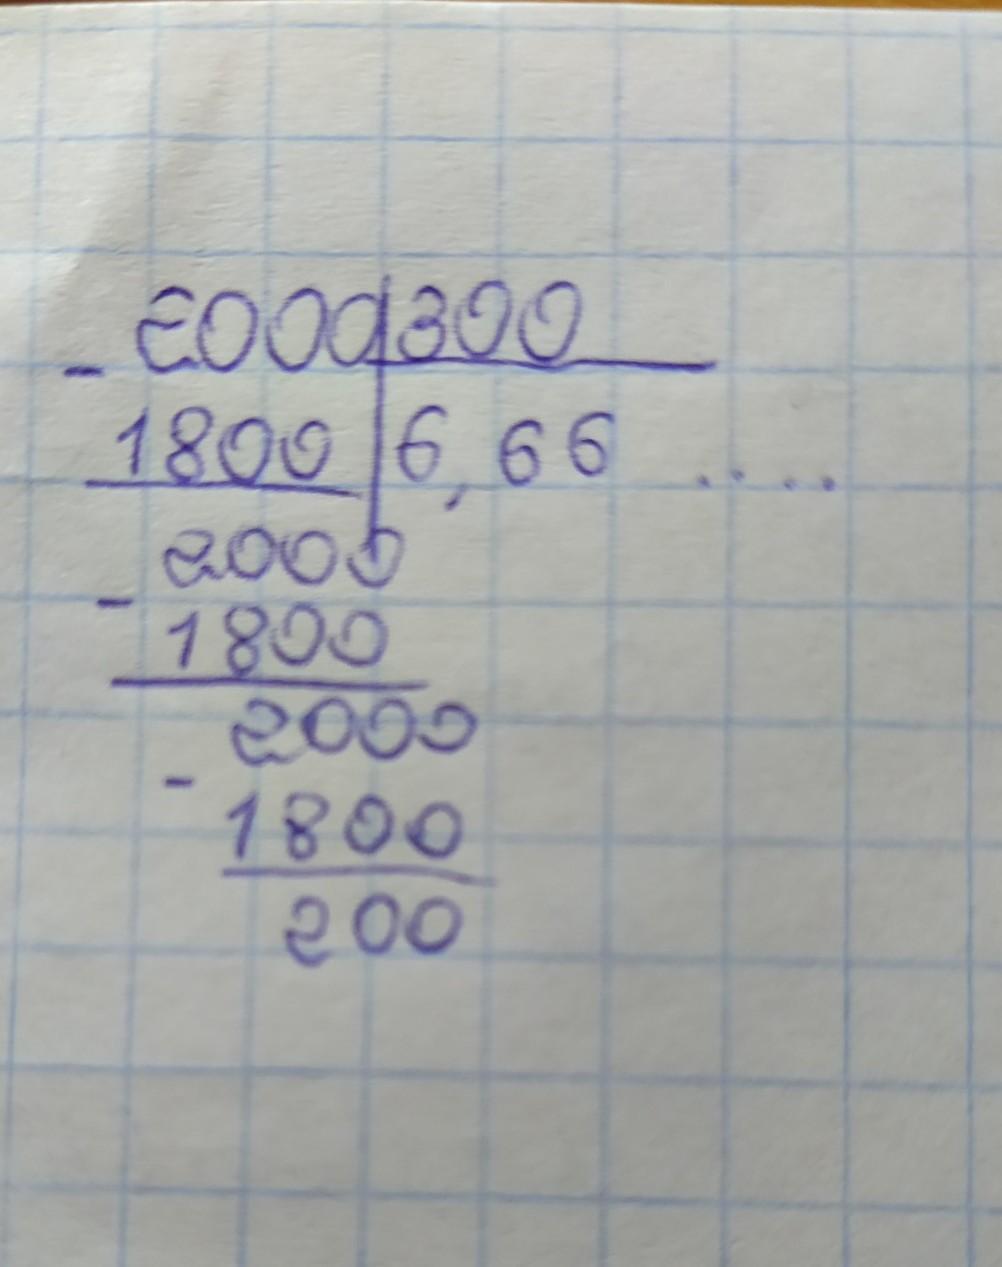 - 2000 300
1800 6,66 ....
2000
- 1800
2000
- 1800
200